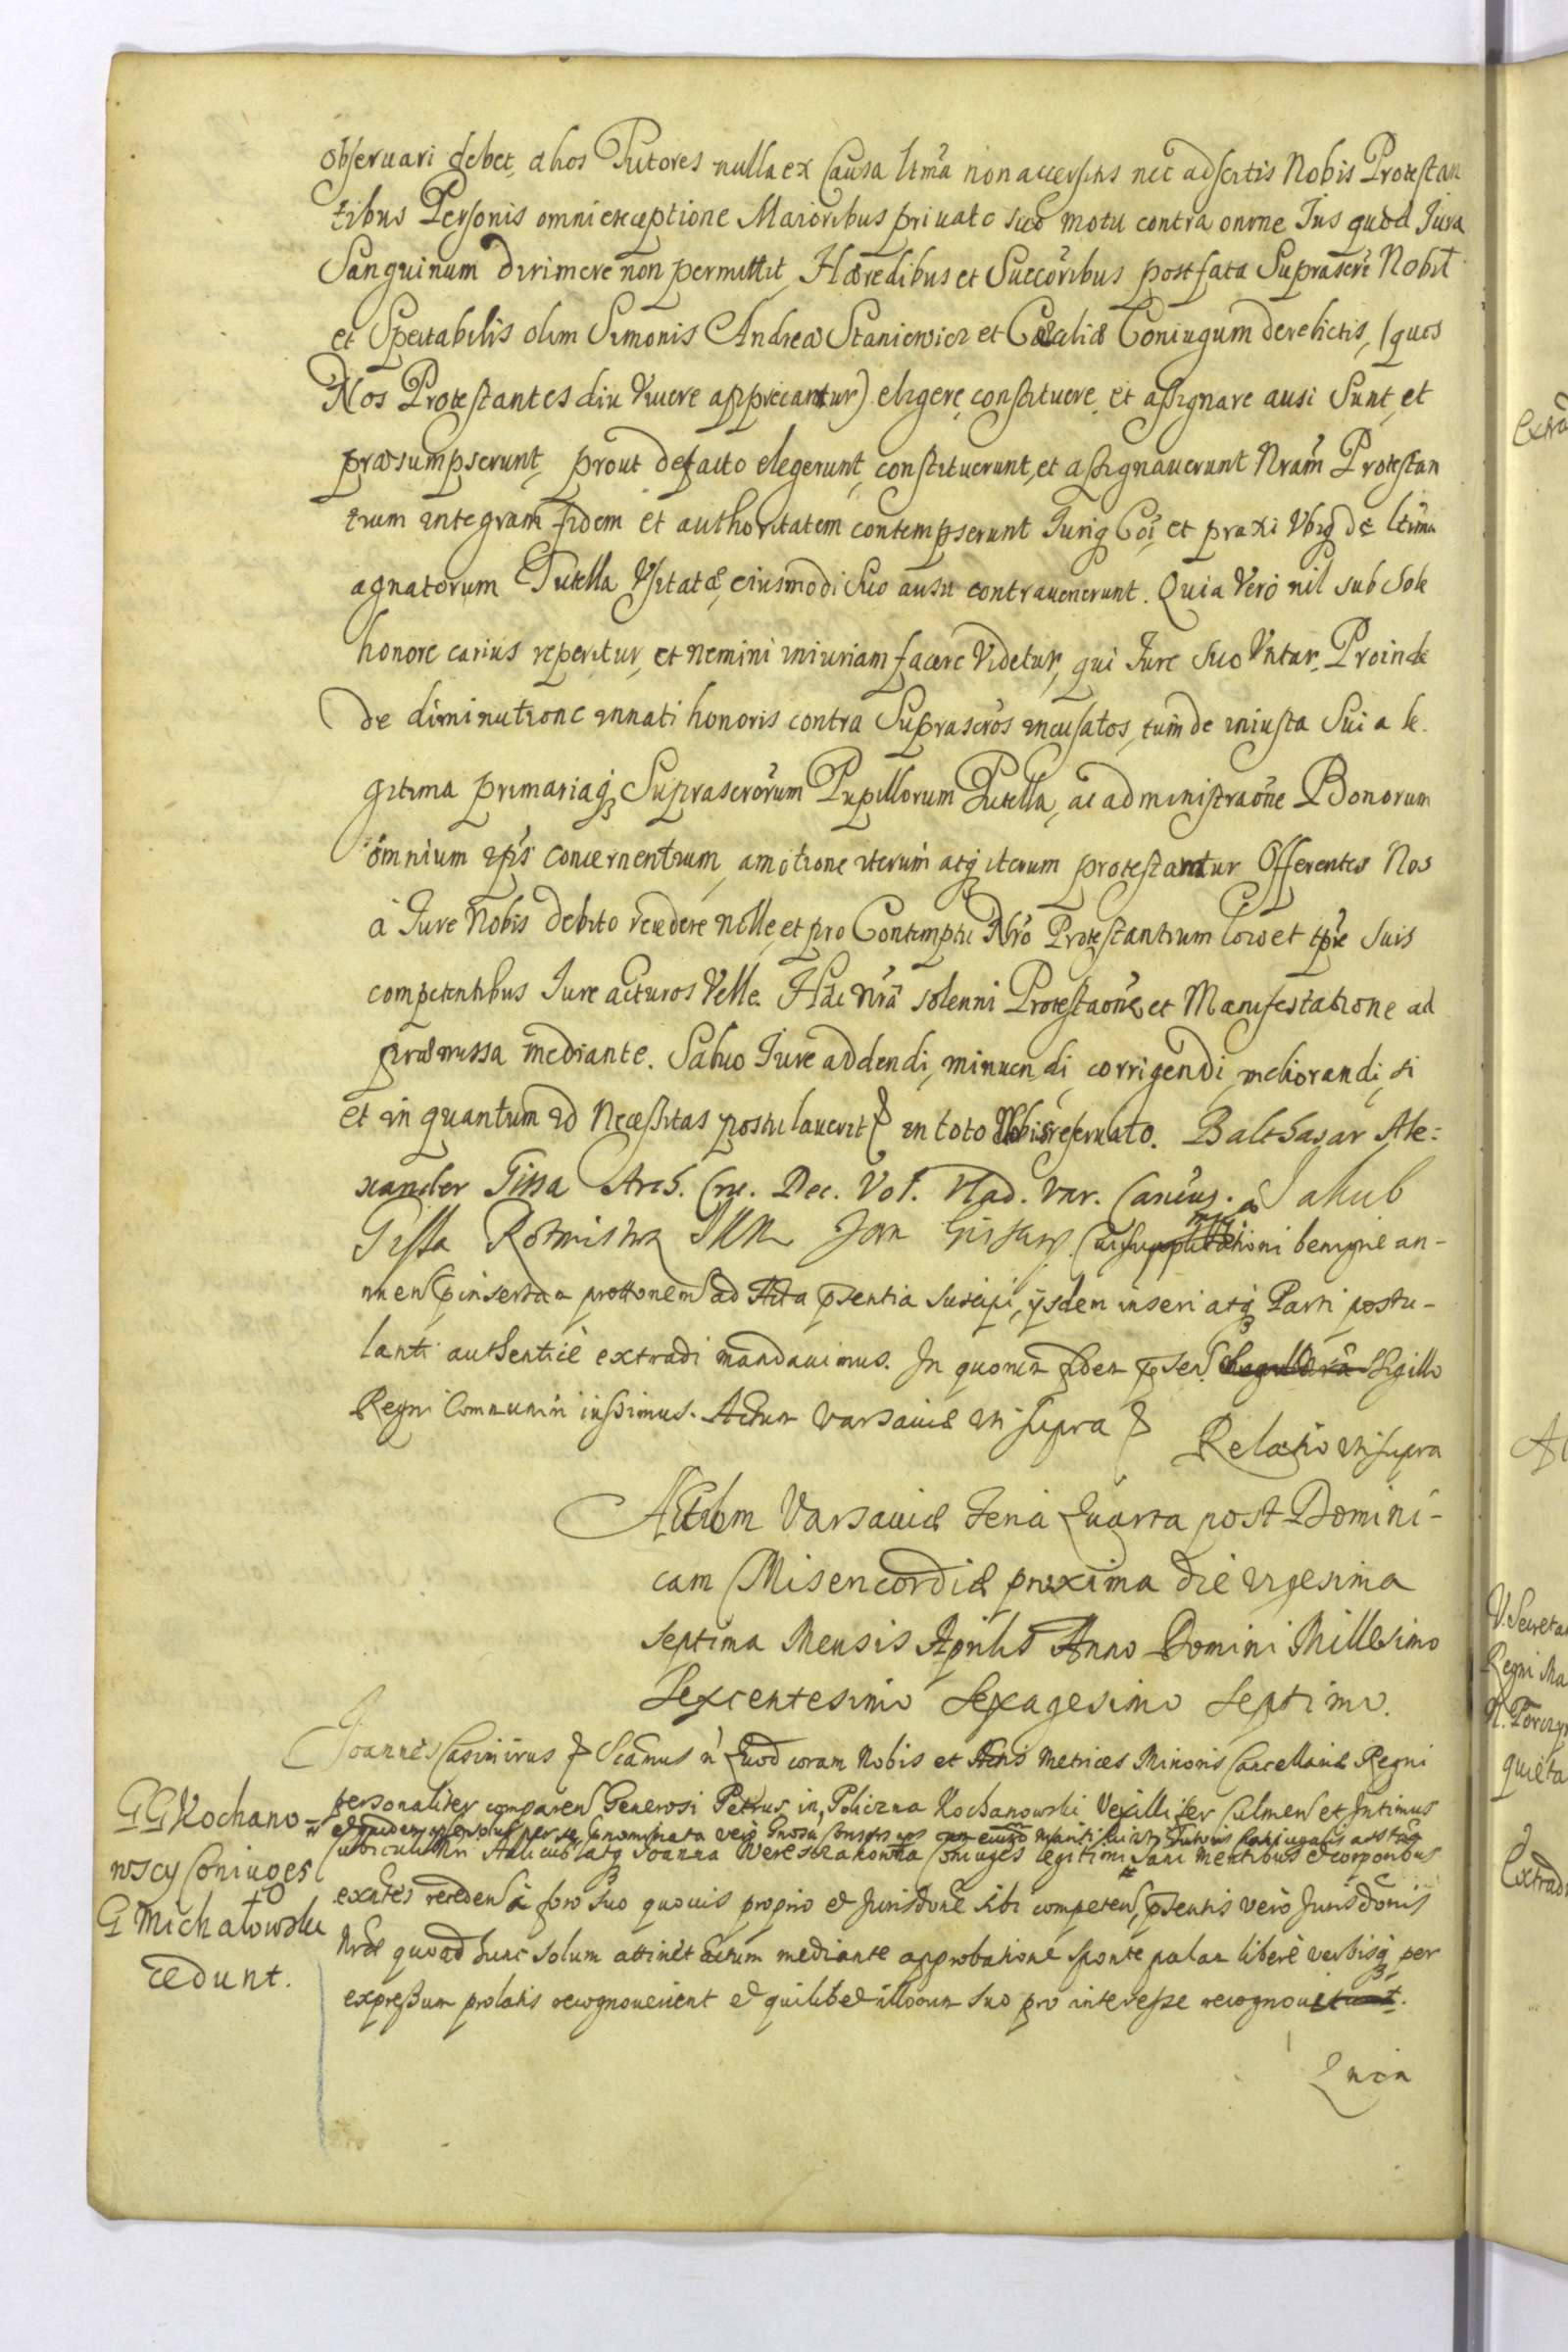 obseruari debet, ahos Tutores nulla ex Causa ltma non accersitis nec adscitis Nobis Protestan
tibus Personis omni exceptione Maioribus priuato suo motu contra omne Ius quod Iura
Sanguinum dirimere non permittit, Hæredibus et Succoribus post fata Suprascrê Nobil
et Spectabilis olim Simonis Andreæ Staniewicz et Cæciliæ Coniugum derelictis, (quos
Nos Protestantes diu Viuere apprecantur) eligere, constituere, et assignare ausi Sunt, et
præsumpserunt, prout defacto elegerunt, constituerunt, et assignauerunt Nram Protestan
tium integram fidem et authoritatem contempserunt Juriq Coi, et praxi Vbiq de ltima
agnatorum Tutella Vsitatæ, eiusmodi Suo ausu contrauenerunt. Quia Verò nil sub Sole
honore carius reperitur, et nemini iniuriam facere Videtur, qui Iure Suo Vtitur. Proinde
de diminutione innati honoris contra Suprascros incusatos, tum de iniusta Sui a le
gitima primariaq Suprascrorum Pupillorum Tutella, ac administraone Bonorum
omnium ipis concernentium, amotione iterum atq iterum protestantur Offerentes Nos
à Iure Nobis debito recedere nolle, et pro Contemptu Nro Protestantium loco et tpre suis
competentibus Iure acturos Velle. Hac nra solenni Protestaone et Manifestatione ad
præmissa mediante. Saluo Iure addendi, minuendi, corrigendi, meliorandi, si
et in quantum id Necessitas postulauerit & in toto Nobis reseruato. Balthasar Ale=
xander Gissa Arch. Cru. Dec. Vol. Vlad. Var. Cancus. Jakub
Gissa Rotmistrz JKM Jan Gissa Cui supplicationi benigne an-
nuen pinsertam prottonem ad Acta psentia suscipi, ijsdem inseri atq Parti postu-
lanti authenticè extradi mandauimus. In quorum fidem psen. Sigillo
Regni Communiri iussimus. Actum Varsauiæ uti supra &
Relatio uti supra
Actum Varsauiæ Feria Quarta post Domini-
cam Misericordiæ proxima die vigesima
septima Mensis Aprilis Anno Domini Millesimo
Sexcentesimo Sexagesimo Septimo.
Joannes Casimirus & Sciamus n Quod coram Nobis et Actis Metrices Minoris Cancellariæ Regni
GG Kochano=
wscy Coniuges
to
G Michałowski
cedunt.
personaliter comparen Generosi Petrus in Policzna Kochanowski Vexillifer Culmen et Intimus
Cubiculi Nri Aulicus atq Joanna Wereszczakowna Coniuges legitimi Sani mentibus et corporibus
existes receden à foro suo quouis proprio et Jurisdone sibi competen, psentis verò Jurisdonis
Nræ quoad hunc solum attinet actum mediante approbatione sponte palam liberè verbisq per
expressum prolatis recognouerunt et quilibet illorum suo pro interesse recognouit.
Quia